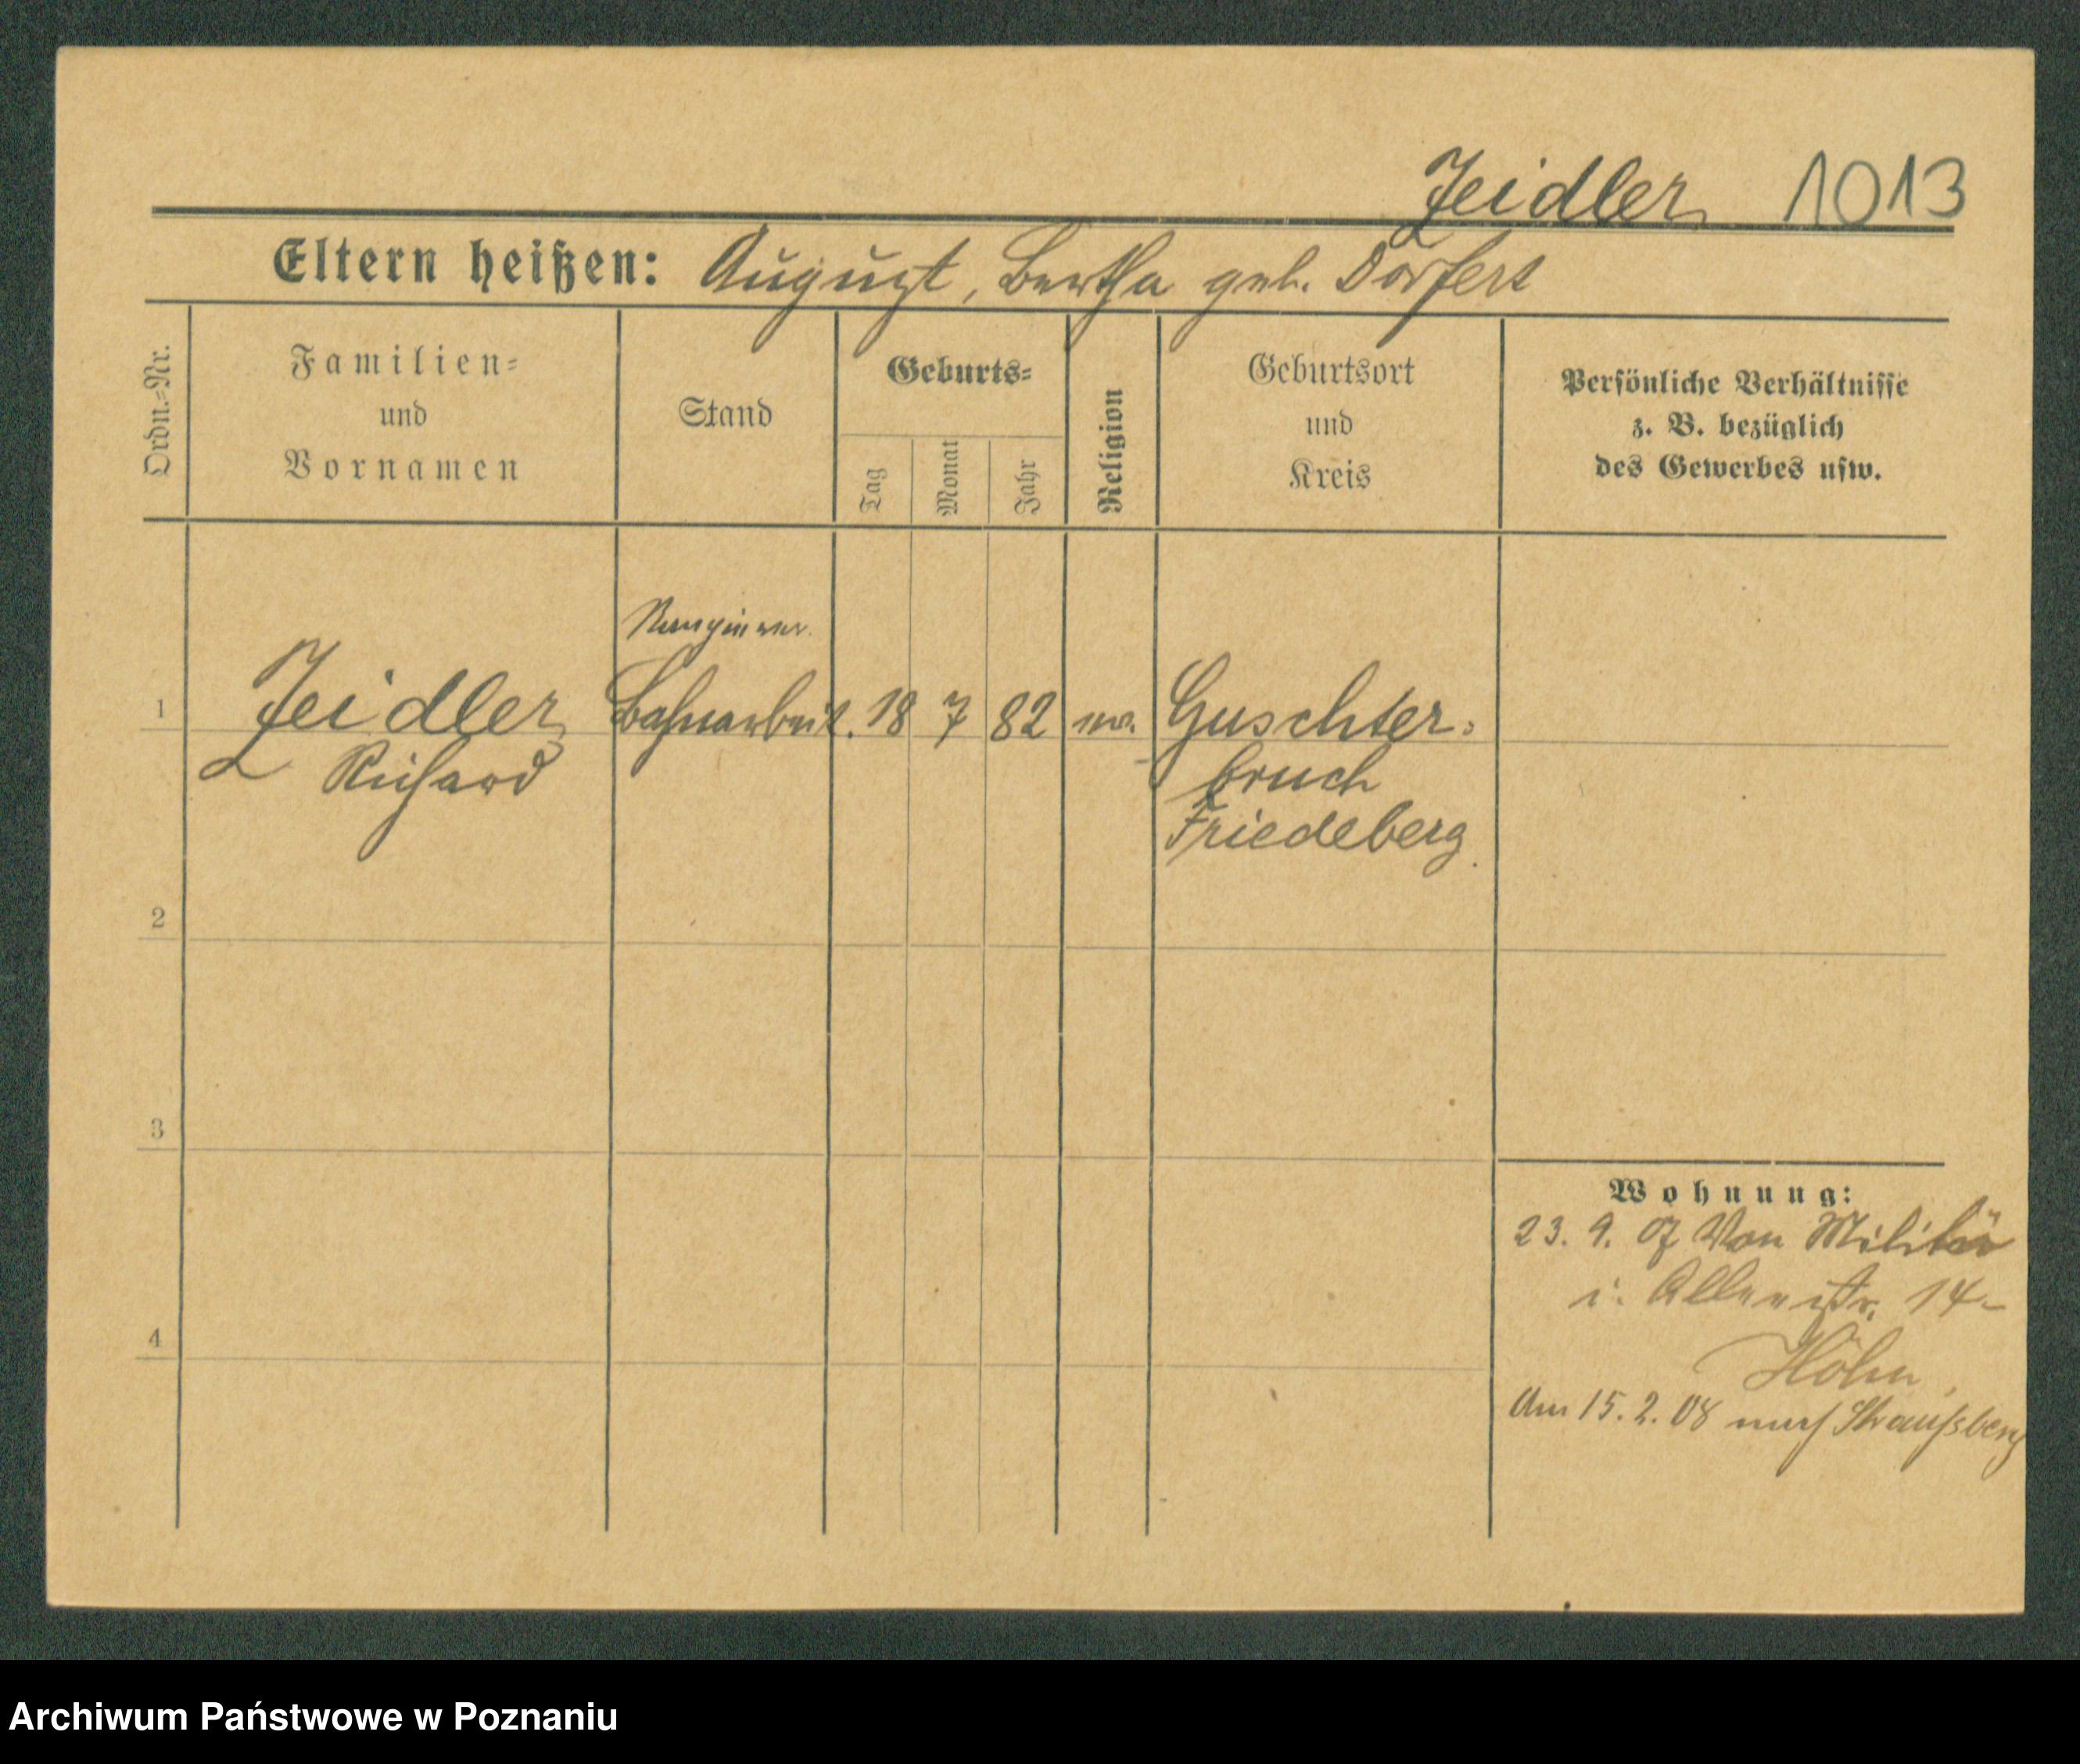 Zeidler 1013
Eltern heißen: August, Bertha geb. Dorfert
Ordn.-Nr.
Familien-
und
Vornamen
Stand
Geburts-
Tag
Monat
Jahr
Religion
Geburtsort
und
Kreis
Persönliche Verhältnisse
z. B. bezüglich
des Gewerbes usw.
Rangierer
1 Zeidler Bahnarbeit. 18 7 82 ev. Guschter-
Richard bruch
Friedeberg
2
3
4
Wohnung:
23. 9. 07 Von Militär
i. 14
Höhn
Am 15. 2. 08 nach Straußberg
Archiwum Państwowe w Poznaniu